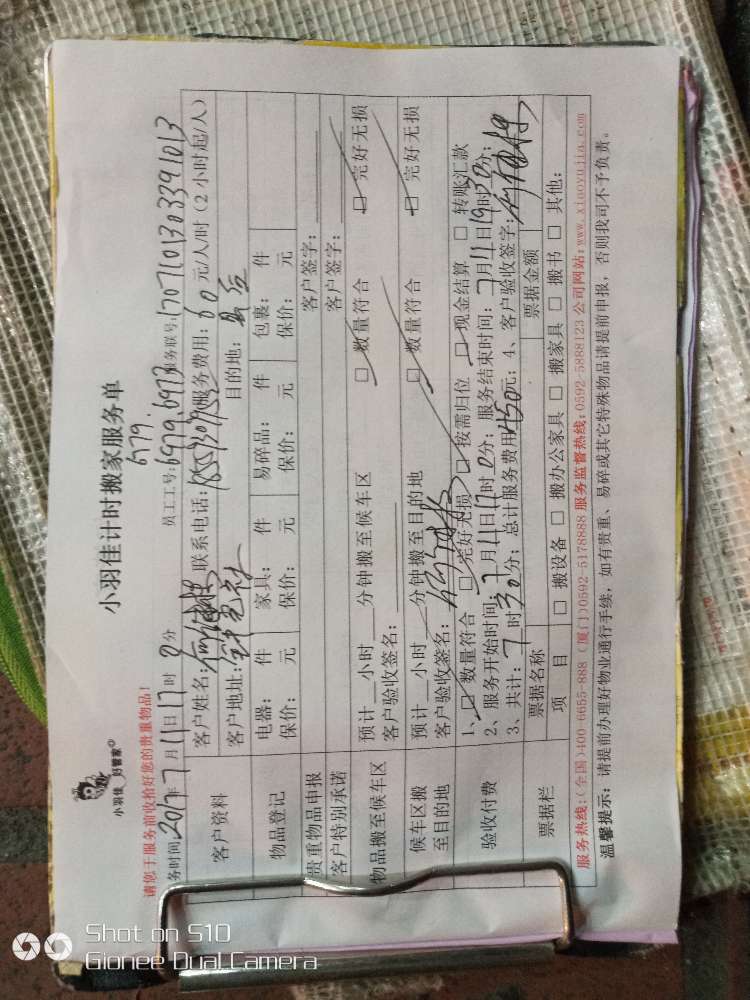 小羽佳 好管家
小羽佳计时搬家服务单
6979.
请您于服务前收拾好您的贵重物品！
务时间:2017年7月11日17时0分 员工工号:6979.6973 服务联号:170710130339 1013
客户资料 客户姓名: 联系电话: 服务费用:60元/人/时（2小时起/人）
客户地址: 目的地:
物品登记 电器： 件 家具： 件 易碎品： 件 包裹： 件
保价： 元 保价： 元 保价： 元 保价： 元
贵重物品申报 客户签字：
客户特别承诺 客户签字：
物品搬至候车区 预计__小时__分钟搬至候车区 □ 数量符合 □ 完好无损
客户验收签名：
候车区搬至目的地 预计__小时__分钟搬至目的地 □ 数量符合 □ 完好无损
客户验收签名：
验收付费 1、□ 数量符合 □ 完好无损 □ 按需归位 □ 现金结算 □ 转账汇款
2、服务开始时间：7月11日17时0分；服务结束时间：7月11日19时30分；
3、共计：7时30分；总计服务费用450元；4、客户验收签字：
票据栏 票据名称 票据金额
项 目 □ 搬设备 □ 搬办公家具 □ 搬家具 □ 搬书 □ 其他：
服务热线:(全国)400-6655-888 (厦门)0592-5178888 服务监督热线:0592-5888123 公司网站:www.xiaoyujia.com
温馨提示：请提前办理好物业通行手续，如有贵重、易碎或其它特殊物品请提前申报，否则我司不予负责。
Shot on S10
Gionee Dual Camera